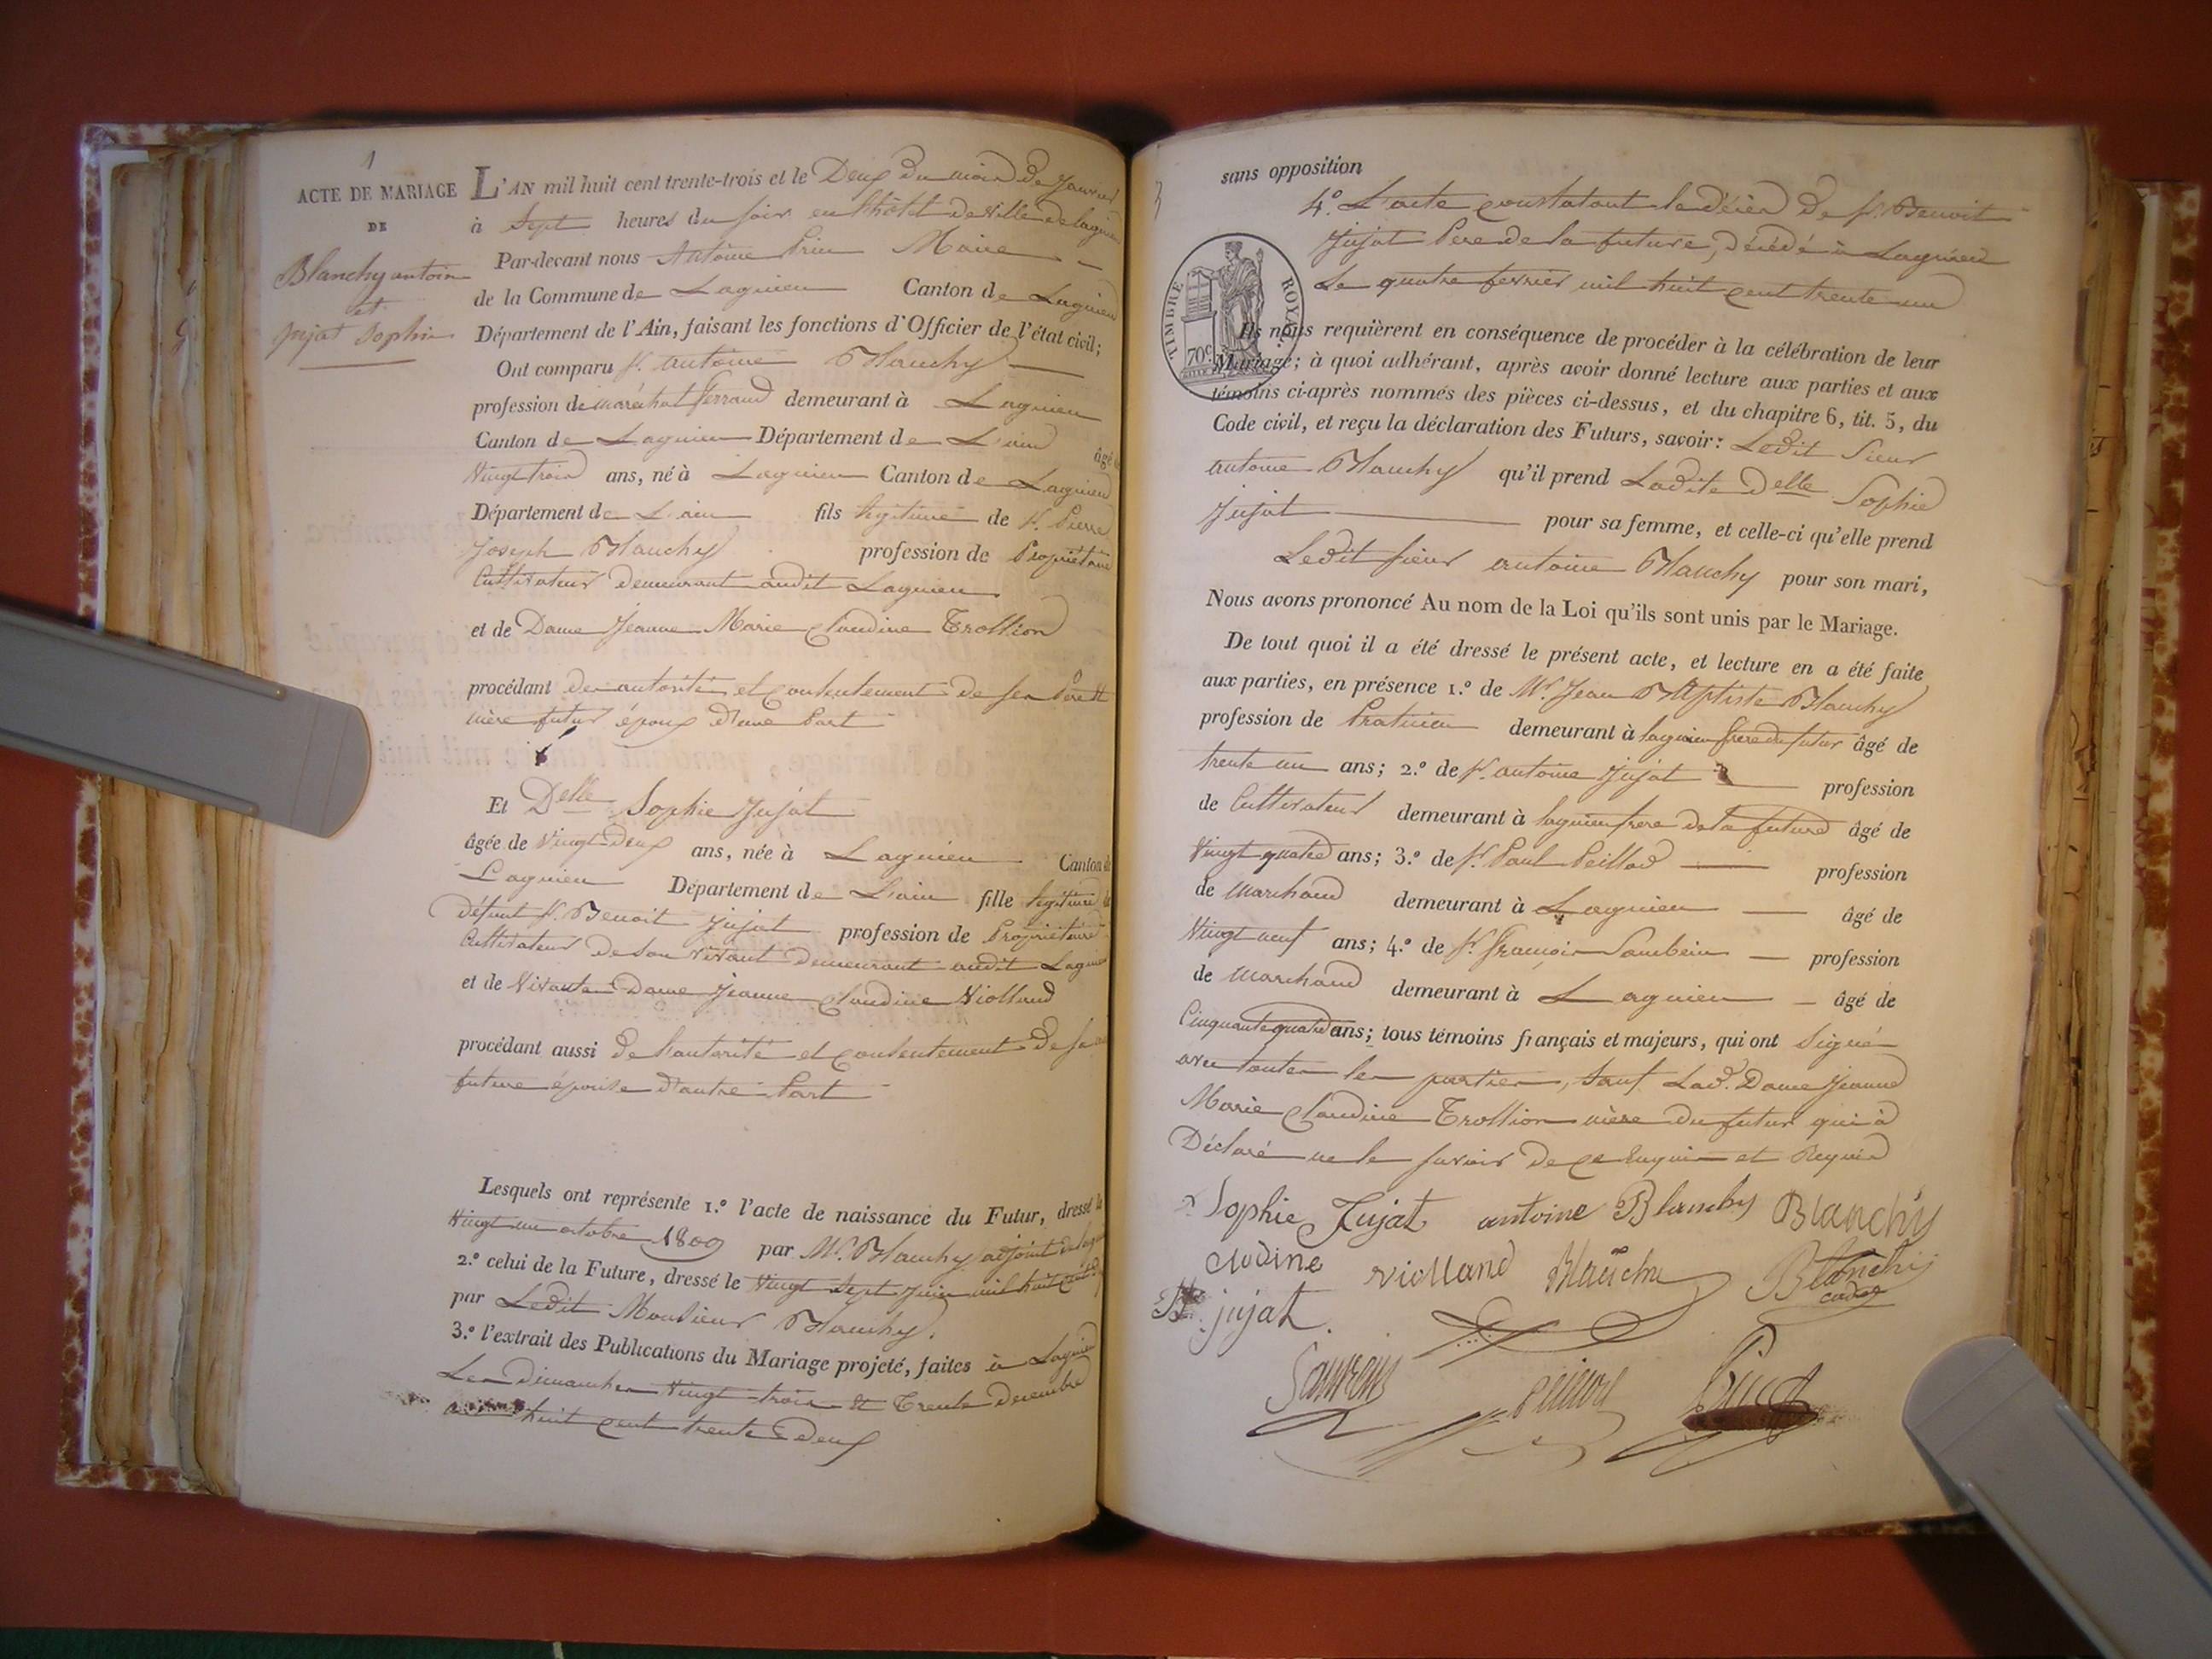 1
ACTE DE MARIAGE
DE
Blanchy antoine
et
jujat Sophie
L'AN mil huit cent trente-trois et le Deux du mois de Janvier
à Sept heures du soir en l'hôtel de ville de lagnieu
Par-devant nous Antoine Maire
de la Commune de Lagnieu Canton de Lagnieu
Département de l'Ain, faisant les fonctions d'Officier de l'état civil;
Ont comparu Sr. antoine Blanchy
profession de maréchal ferrand demeurant à Lagnieu
Canton de Lagnieu Département de L'ain âgé de
Vingt trois ans, né à Lagnieu Canton de Lagnieu
Département de L'ain fils légitime de Sr. Pierre
Joseph Blanchy profession de Propriétaire
Cultivateur demeurant audit Lagnieu
et de Dame Jeanne Marie Claudine Trollion
procédant de autorité et consentement de ses Père et
mère futur époux d'une Part
Et Delle Sophie Jujat
âgée de Vingt-Deux ans, née à Lagnieu Canton de
Lagnieu Département de L'ain fille légitime de
défunt Sr. Benoit Jujat profession de Propriétaire
Cultivateur de son vivant demeurant audit Lagnieu
et de Vivante Dame Jeanne Claudine Violland
procédant aussi de l'autorité et consentement de sa
future épouse d'autre Part
Lesquels ont représenté 1.º l'acte de naissance du Futur, dressé le
Vingt un octobre 1809 par Mr. Blanchy adjoint de
2.º celui de la Future, dressé le Vingt Sept Juin mil huit cent
par Ledit Monsieur Blanchy.
3.º l'extrait des Publications du Mariage projeté, faites à Lagnieu
Les dimanches Vingt-trois et Trente Decembre
huit cent trente Deux
sans opposition
4.º L'acte constatant le décès de Sr. Benoit
Jujat Pere de la future, décédé à Lagnieu
Le quatre fevrier mil huit cent trente un
TIMBRE ROYAL
70c
Ils nous requièrent en conséquence de procéder à la célébration de leur
Mariage; à quoi adhérant, après avoir donné lecture aux parties et aux
témoins ci-après nommés des pièces ci-dessus, et du chapitre 6, tit. 5, du
Code civil, et reçu la déclaration des Futurs, savoir: Ledit Sieur
antoine Blanchy qu'il prend Ladite Delle Sophie
Jujat pour sa femme, et celle-ci qu'elle prend
Ledit Sieur antoine Blanchy pour son mari,
Nous avons prononcé Au nom de la Loi qu'ils sont unis par le Mariage.
De tout quoi il a été dressé le présent acte, et lecture en a été faite
aux parties, en présence 1.º de Mr. Jean Baptiste Blanchy
profession de Praticien demeurant à lagnieu frere du futur âgé de
trente un ans; 2.º de Sr. antoine Jujat profession
de Cultivateur demeurant à lagnieu frere de la future âgé de
Vingt quatre ans; 3.º de Sr. Paul Peillod profession
de Marchand demeurant à Lagnieu âgé de
Vingt neuf ans; 4.º de Sr. françois profession
de Marchand demeurant à Lagnieu âgé de
Cinquante quatre ans; tous témoins français et majeurs, qui ont Signé
avec toutes les parties, Sauf Lad. Dame Jeanne
Marie Claudine Trollion mère du futur qui à
Déclaré ne le savoir de ce Enquis et Requis
Sophie Jujat antoine Blanchy Blanchy
clodine violland Blanchy Blanchy
cadet
jujat